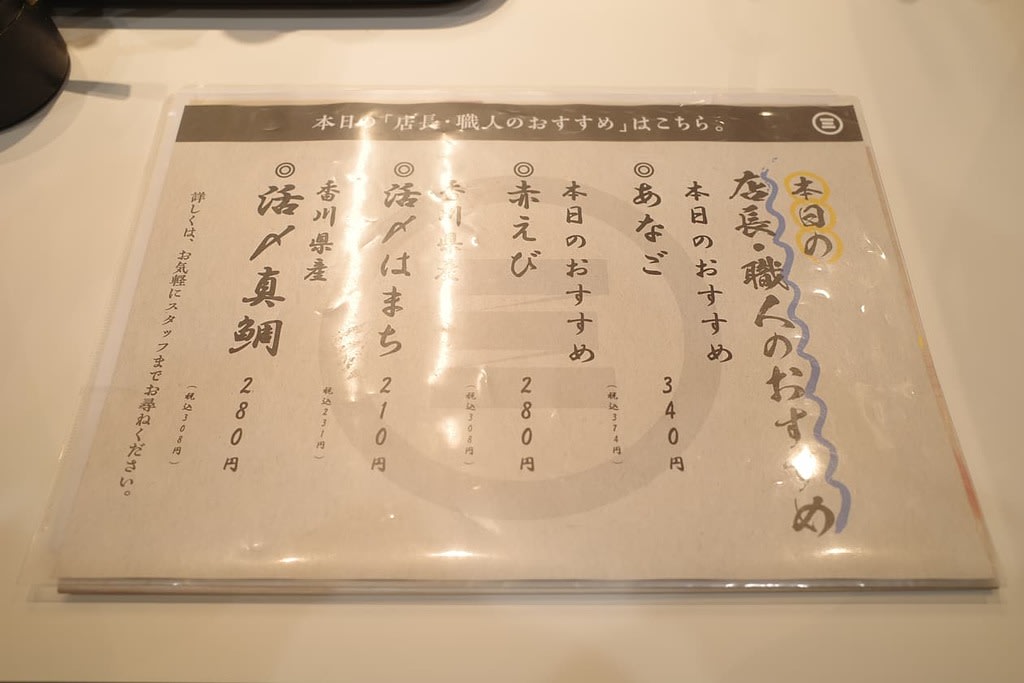 本日の「店長・職人のおすすめ」はこちら。
本日の
店長・職人のおすすめ
本日のおすすめ
◎あなご 340円
(税込374円)
本日のおすすめ
◎赤えび 280円
(税込308円)
香川県産
◎活〆はまち 210円
(税込231円)
香川県産
◎活〆真鯛 280円
(税込308円)
詳しくは、お気軽にスタッフまでお尋ねください。